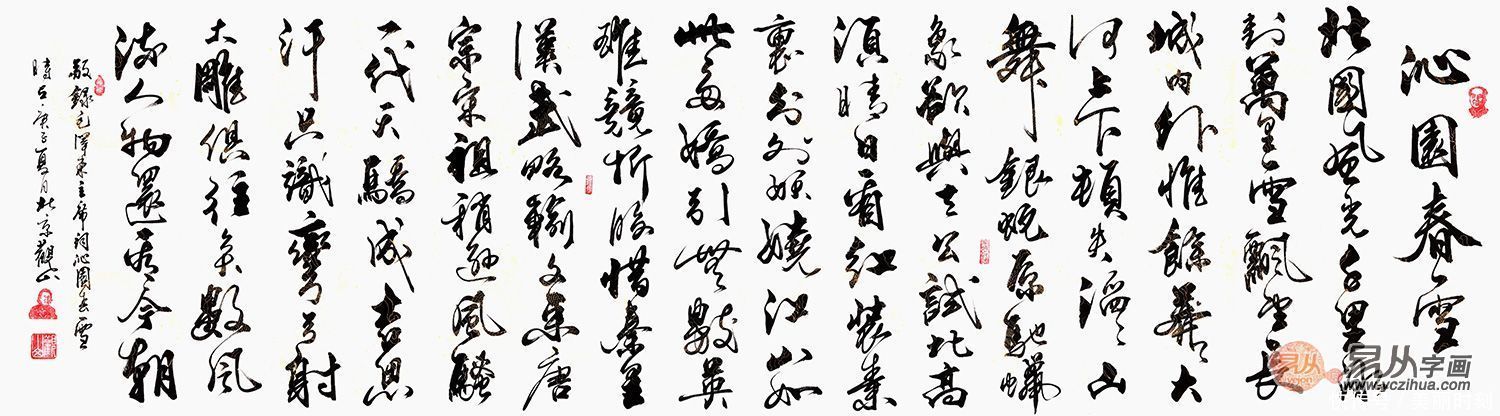 沁園春雪
北國風光千里冰
封萬里雪飄望長
城内外惟餘莽〻大
河上下頓失滔〻山
舞銀蛇原馳蠟
象欲與天公試比高
須晴日看紅裝素
裹分外妖嬈江山如
此多嬌引無數英
雄競折腰惜秦皇
漢武略輸文采唐
宗宋祖稍遜風騷
一代天驕成吉思
汗只識彎弓射
大雕俱往矣數風
流人物還看今朝
敬録毛澤東主席詞沁園春雪
時在庚子夏月北京觀山
易从
易从字画
www.yczihua.com
快传号 / 美丽时刻